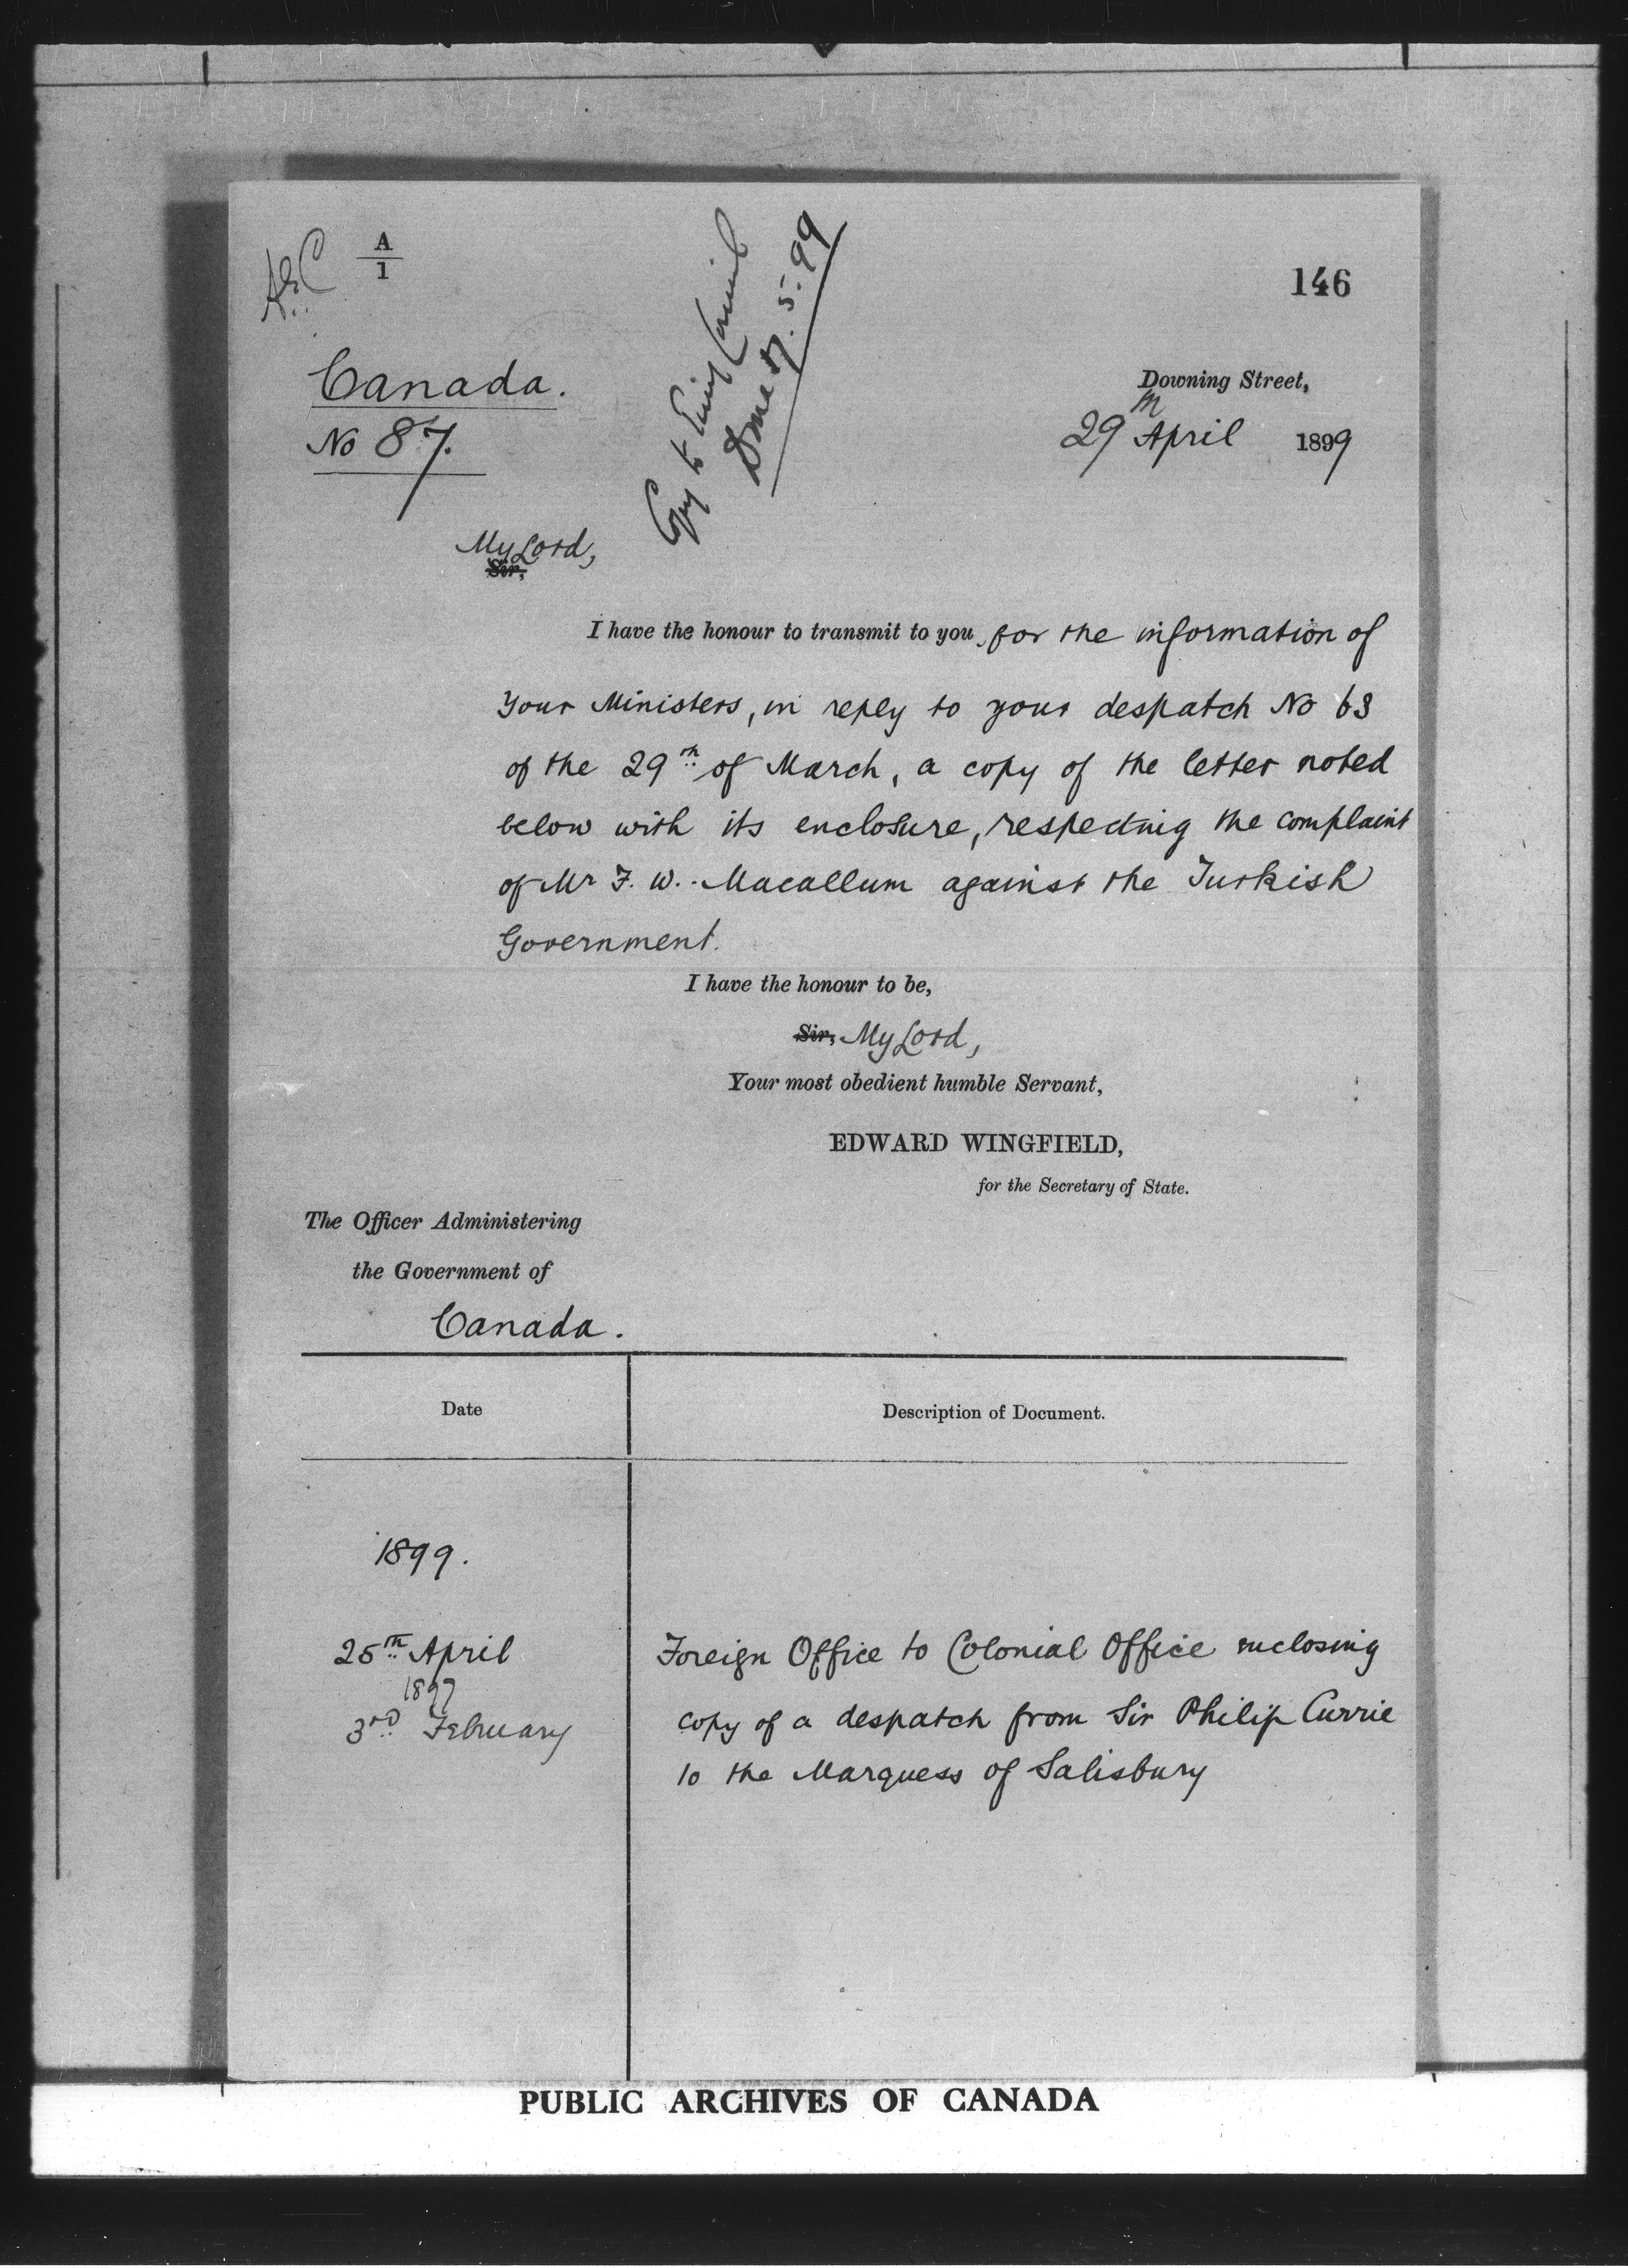 A
1
146
Canada.
No 87.
Copy to Privy Council
Done 17.5.99
Downing Street,
29th April 1899
My Lord,
Sir,
I have the honour to transmit to you, for the information of
Your Ministers, in reply to your despatch No 63
of the 29th of March, a copy of the letter noted
below with its enclosure, respecting the complaint
of Mr F. W. Macallum against the Turkish
Government.
I have the honour to be,
Sir, My Lord,
Your most obedient humble Servant,
EDWARD WINGFIELD,
for the Secretary of State.
The Officer Administering
the Government of
Canada.
Date
Description of Document.
1899.
25th April
1897
3rd February
Foreign Office to Colonial Office enclosing
copy of a despatch from Sir Philip Currie
to the Marquess of Salisbury
PUBLIC ARCHIVES OF CANADA